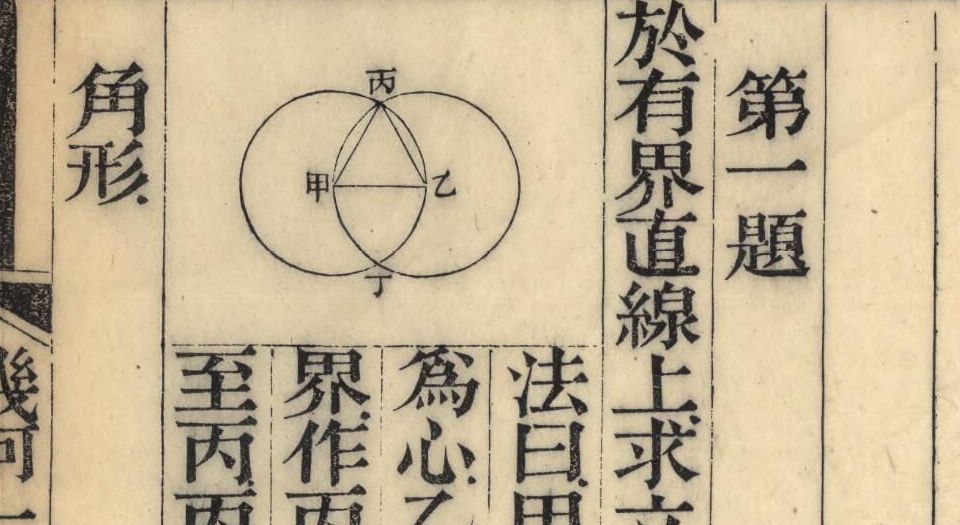 第一題
於有界直線上求立
法曰甲
爲心乙
界作丙
至丙丙
角形
幾何一
丙
甲
乙
丁